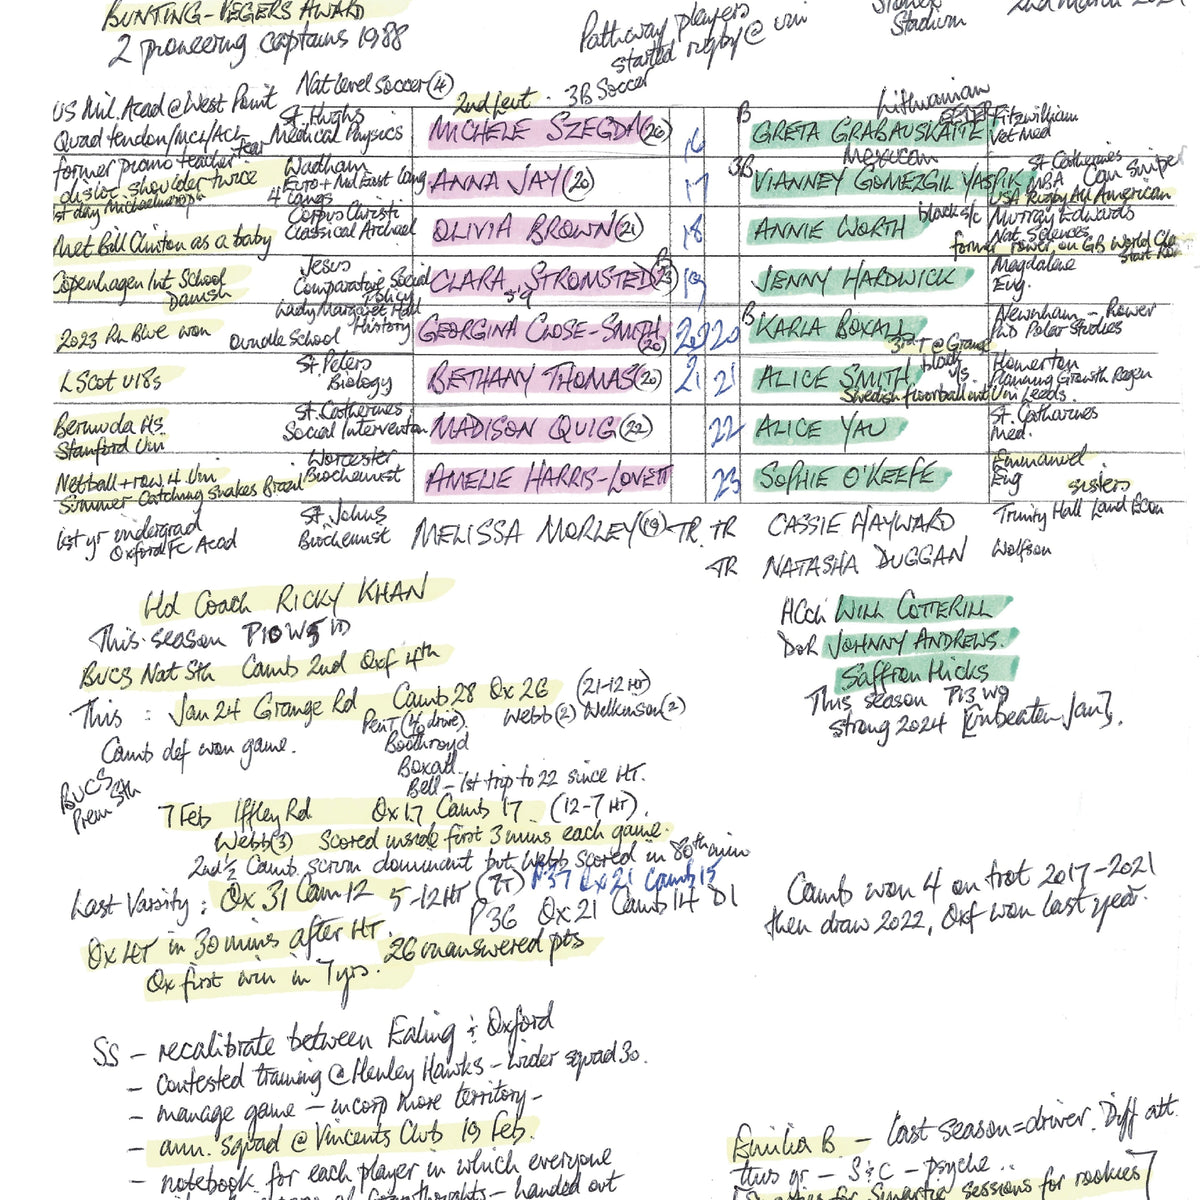 BUNTING-           AWARD
2 pioneering captains 1988
Pathway players
started rugby @ uni
Stadium
2nd March
Nat level soccer (4)
US Mil. Acad @ West Point
St. Hughs
2nd Leut.
3B Soccer
Lithuanian
Quad tendon/MCL/ACL tear
Medical Physics
MICHELE SZEGDA (26)
16
B
GRETA GRABAUSKAITE
Fitzwilliam
Vet Med
former promo teacher
disloc. shoulder twice
1st day Michaelmas
Wadham
Euro + Mid East Lang
4 Langs
ANNA JAY (20)
17
3B
Mexican
VIANNEY GOMEZGIL YASPIK
St. Catherines
MBA
USA Rugby All American
met Bill Clinton as a baby
Corpus Christi
Classical Archael
OLIVIA BROWN (21)
18
ANNIE WORTH
black s/c
Murray Edwards
Nat. Sciences
former rower on GB World Cla
Start
Copenhagen Int. School
Danish
Jesus
Comparative Social Policy
CLARA STROMSTED (23)
B
5'9
19
JENNY HARDWICK
Magdalene
Eng.
2023 RL Blue won
Oundle School
Lady Margaret Hall
History
GEORGINA CLOSE-SMITH (20)
20 20
B
KARLA BOXALL
Newnham - Rower
PhD Polar Studies
3rd T @ Grange
LScot U18s
St. Peters
Biology
BETHANY THOMAS (20)
21 21
ALICE SMITH
black
Homerton
Planning Growth Regen
Swedish floorball int Uni Leeds.
Bermuda HS.
Stanford Uni
St. Catherines
Social Intervention
MADISON QUIG (22)
22
ALICE YAU
St. Catharines
Med.
Netball + row 4 Uni
Summer - Catching snakes Brazil
Worcester
Biochemist
AMELIE HARRIS-LOVETT
23
SOPHIE O'KEEFE
Emmanuel
Eng
sisters
1st yr undergrad
Oxford FC Acad
St. Johns
Biochemist
MELISSA MORLEY (19) TR. TR
CASSIE HAYWARD
Trinity Hall Land Econ
TR
NATASHA DUGGAN
Wolfson
Hd Coach RICKY KHAN
This season P10 W5 1D
BUCS Nat Sth Camb 2nd Oxf 4th
This : Jan 24 Grange Rd Camb 28 Ox 26 (21-12 HT)
Webb (2) Wilkinson (2)
Camb def won game.
Boothroyd
Boxall
Bell - 1st trip to 22 since HT.
BUCS
Prem Sth
7 Feb Iffley Rd Ox 17 Camb 17 (12-7 HT).
Webb (3) Scored inside first 3 mins each game.
2nd ½ Camb scrum dominant but Webb scored in 80th min
Last Varsity : Ox 31 Cam 12 5-12 HT (7T) P37 Ox 21 Camb 15
P36 Ox 21 Camb 14 D1
Ox 4T in 30 mins after HT.
26 unanswered pts
Ox first win in 7 yrs.
HCch WILL COTTERILL
DoR JOHNNY ANDREWS.
Saffron Hicks
This season P13 W9
strong 2024 [unbeaten Jan].
Camb won 4 on trot 2017-2021
then draw 2022, Oxf won last year.
SS - recalibrate between Ealing & Oxford
- contested training @ Henley Hawks - wider squad 30.
- manage game - incorp more territory -
- ann. squad @ Vincents Club 19 Feb.
- notebook for each player in which everyone
- handed out
Emilia B - last season = driver. Diff att.
this yr - S&C - psyche ..
sessions for rookies